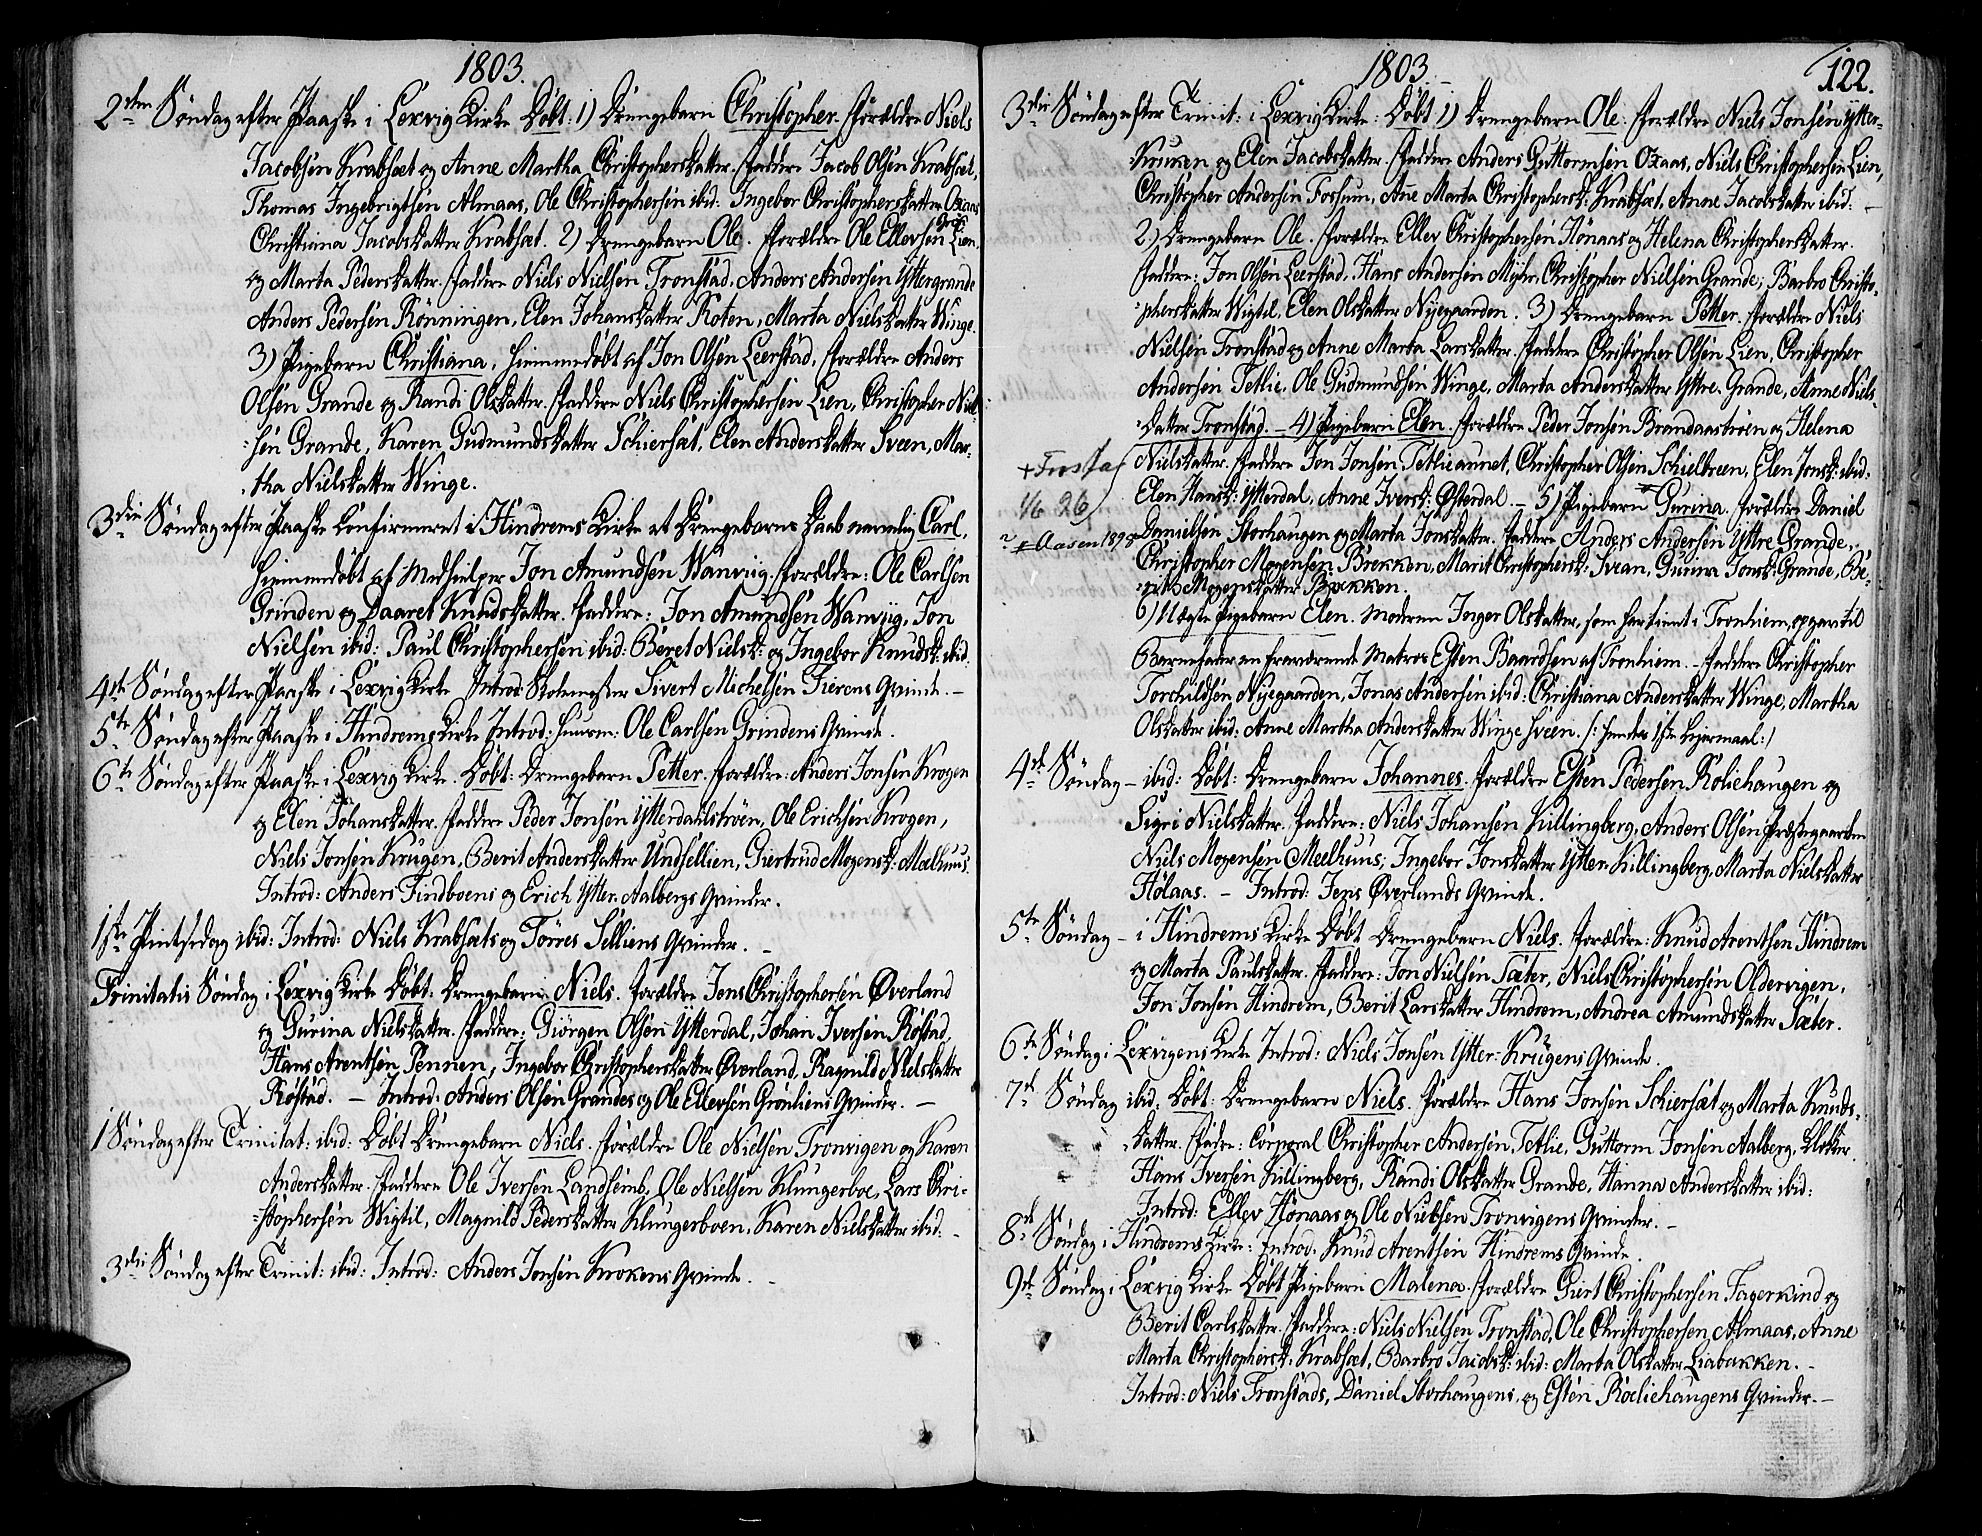 1803.
2den Søndag efter Paaske i Lexvig Kirke Døbt: 1) Drengebarn Christopher. Forældre Niels
Jacobsen Krabsæt og Anne Martha Christophersdatter. Faddere Jacob Olsen Krabsæt,
Thomas Ingebrigtsen Almaas, Ole Christophersen ibid: Ingebor Christophersdatter Oxaas
Christiana Jacobsdatter Krabsæt. 2) Drengebarn Ole. Forældre Ole Ellevsen Grön Lien.
og Marta Pedersdatter. Faddere Niels Nielsen Tronstad, Anders Andersen Yttergrande
Anders Pedersen Rönningen, Elen Johansdatter Roten, Marta Nielsdatter Winge.
3) Pigebarn Christiana, hiemmedøbt af Jon Olsen Leerstad, Forældre Anders
Olsen Grande og Randi Olsdatter. Faddere Niels Christophersen Lien, Christopher Niel-
:sen Grande, Karen Gudmundsdatter Schiersæt, Elen Andersdatter Sveen, Mar-
:tha Nielsdatter Winge.
3die Søndag efter Paaske Confirmeret i Hindrems Kirke et Drengebarns Daab navnlig Carl,
hiemmedøbt af Medhielper Jon Amundsen Wanvig. Forældre: Ole Carlsen
Grinden og Daaret Knudsdatter. Faddere: Jon Amundsen Wanviig, Jon
Nielsen ibid: Paul Christophersen ibid: Beret Nielsd: og Ingebor Knudsd: ibid.
4de Søndag efter Paaske i Lexvig Kirke Introd: Skolemester Sivert Michelsen Fierens Qvinde. –
5te Søndag efter Paaske i Hindrems Kirke Introd: Huusm: Ole Carlsen Grindens Qvinde.
6te Søndag efter Paaske i Lexvig Kirke Døbt: Drengebarn Petter. Forældre: Anders Jonsen Krogen
og Elen Johansdatter. Faddere Peder Jonsen Ytterdahlströen, Ole Erichsen Krogen,
Niels Jonsen Krugen, Berit Andersdatter Undsellien, Giertrud Mogensd: Mælhuus.
Introd: Anders Findboens og Erich Ytter Aalbergs Qvinder.
1ste Pintsedag ibid: Introd: Niels Krabsæts og Törres Selliens Qvinder. –
Trinitatis Søndag i Lexvig Kirke Døbt: Drengebarn Niels. Forældre Jens Christophersen Øverland
og Gurina Nielsdatter. Faddere: Giörgen Olsen Ytterdal, Johan Iversen Röstad,
Hans Arentsen Pennen, Ingebor Christophersdatter Øverland, Ragnild Nielsdatter
Röstad. – Introd: Anders Olsen Grandes og Ole Ellevsen Grönliens Qvinder. –
1 Søndag efter Trinitat: ibid: Døbt Drengebarn Niels. Forældre Ole Nielsen Tronvigen og Karen
Andersdatter. Faddere Ole Iversen Landsemb, Ole Nielsen Klungerboe, Lars Chri-
:stophersen Wigtil, Magnild Pedersdatter Klungerboen, Karen Nielsdatter ibid: –
3die Søndag efter Trinit: ibid: Introd: Anders Jonsen Krokens Qvinde. –
1803. –
122.
3die Søndag efter Trinit: i Lexvig Kirke: Døbt 1) Drengebarn Ole. Forældre Niels Jonsen Ytter-
:Kruken og Elen Jacobsdatter. Faddere Anders Guttormsen Oxaas, Niels Christophersen Lien,
Christopher Andersen Fossum, Añe Marta Christophersd: Krabsæt, Anne Jacobsdatter ibid: –
2) Drengebarn Ole. Forældre Ellev Christophersen Hönaas og Helena Christophersdatter.
Faddere: Jon Olsen Leerstad, Hans Andersen Myhr, Christopher Nielsen Grande, Barbro Christo-
:phersdatter Wigtil, Elen Olsdatter Nyegaarden. 3) Drengebarn Petter. Forældre Niels
Nielsen Tronstad og Anne Marta Larsdatter. Faddere Christopher Olsen Lien, Christopher
Andersen Tetlie, Ole Gudmundsen Winge, Marta Andersdatter Yttre Grande, Anne Niels-
:datter Tronstad. – 4) Pigebarn Elen. Forældre Peder Jonsen Brandaaströen og Helena
Nielsdatter. Faddere Jon Jonsen Tetlieaunet, Christopher Olsen Schielbreen, Elen Jonsd: ibid:
Elen Hansd: Ytterdal, Anne Iversd: Østerdal. – 5) Pigebarn Gurina. Forældre Daniel
+ Frosta
16/ 26
? + Aasen 1895
Danielsen Storhaugen og Marta Jonsdatter. Faddere Anders Andersen Yttre Grande,
Christopher Mogensen Brekken, Marit Christophersd: Svean, Gunna Jonsd: Grande, Be-
:rit Mogensdatter Brekken.
6) Uægte Pigebarn Elen. Moderen Inger Olsdatter, som har tient i Tronhiem, opgav til
Barnefader en fraværende Matros Esten Baardsen af Tronhiem. – Faddere Christopher
Torchildsen Nyegaarden, Jonas Andersen ibid: Christiana Andersdatter Winge, Martha
Olsdatter ibid: Anne Martha Andersdatter Winge Sveen. /: hendes 1ste Leyermaal :/
4de Søndag – ibid: Døbt: Drengebarn Johannes. Forældre Esten Pedersen Roliehaugen og
Sigri Nielsdatter. Faddere: Niels Johansen Killingberg, Anders Olsen Præstegaarden
Niels Mogensen Meelhuus, Ingebor Jonsdatter Ytter-Killingberg, Marta Nielsdatter
Hølaas. – Introd: Jens Øverlands Qvinde.
5te Søndag – i Hindrems Kirke Døbt Drengebarn Niels. Forældre: Knud Arentsen Hindrem
og Marta Paulsdatter. Faddere: Jon Nielsen Sæter, Niels Christophersen Oldervigen,
Jon Jonsen Hindrem, Berit Larsdatter Hindrem, Andrea Amundsdatter Sæter.
6te Søndag i Lexvigens Kirke Introd: Niels Jonsen Ytter-Krügens Qvinde.
7de Søndag ibid: Døbt: Drengebarn Niels. Forældre Hans Jonsen Schiersæt og Marta Knuds-
:datter. Fadre: Corporal Christopher Andersen Tetlie, Guttorm Jonsen Aalberg, Klokker
Hans Iversen Killingberg, Randi Olsdatter Grande, Hanna Andersdatter ibid:
Introd: Ellev Hönaas og Ole Nielsen Tronvigens Qvinder. –
8de Søndag i Hindrems Kirke: Introd: Knud Arentsen Hindrems Qvinde.
9de Søndag i Lexvig Kirke Døbt Pigebarn Malena. Forældre Giert Christophersen Fagervind og
Berit Carlsdatter. Faddere: Niels Nielsen Tronstad, Ole Christophersen Almaas, Anne
Marta Christophersd: Krabsæt, Barbro Jacobsd: ibid: Marta Olsdatter Liabakken. –
Introd: Niels Tronstads, Daniel Storhaugens, og Esten Roeliehaugens Qvinder. –